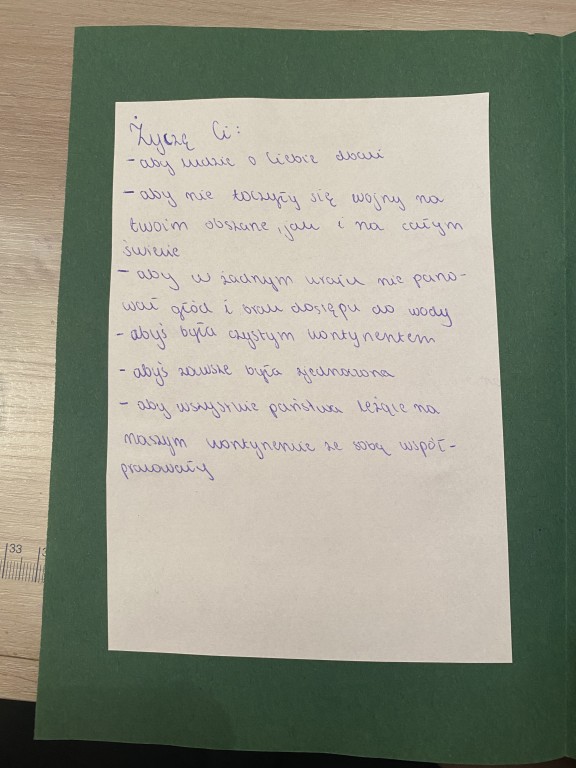 Życzę Ci:
- aby ludzie o Ciebie dbali
- aby nie toczyły się wojny na
twoim obszarze, jak i na całym
świecie
- aby w żadnym kraju nie pano-
wał głód i brak dostępu do wody
- abyś była czystym kontynentem
- abyś zawsze była zjednoczona
- aby wszystkie państwa leżące na
naszym kontynencie ze sobą współ-
pracowały
33